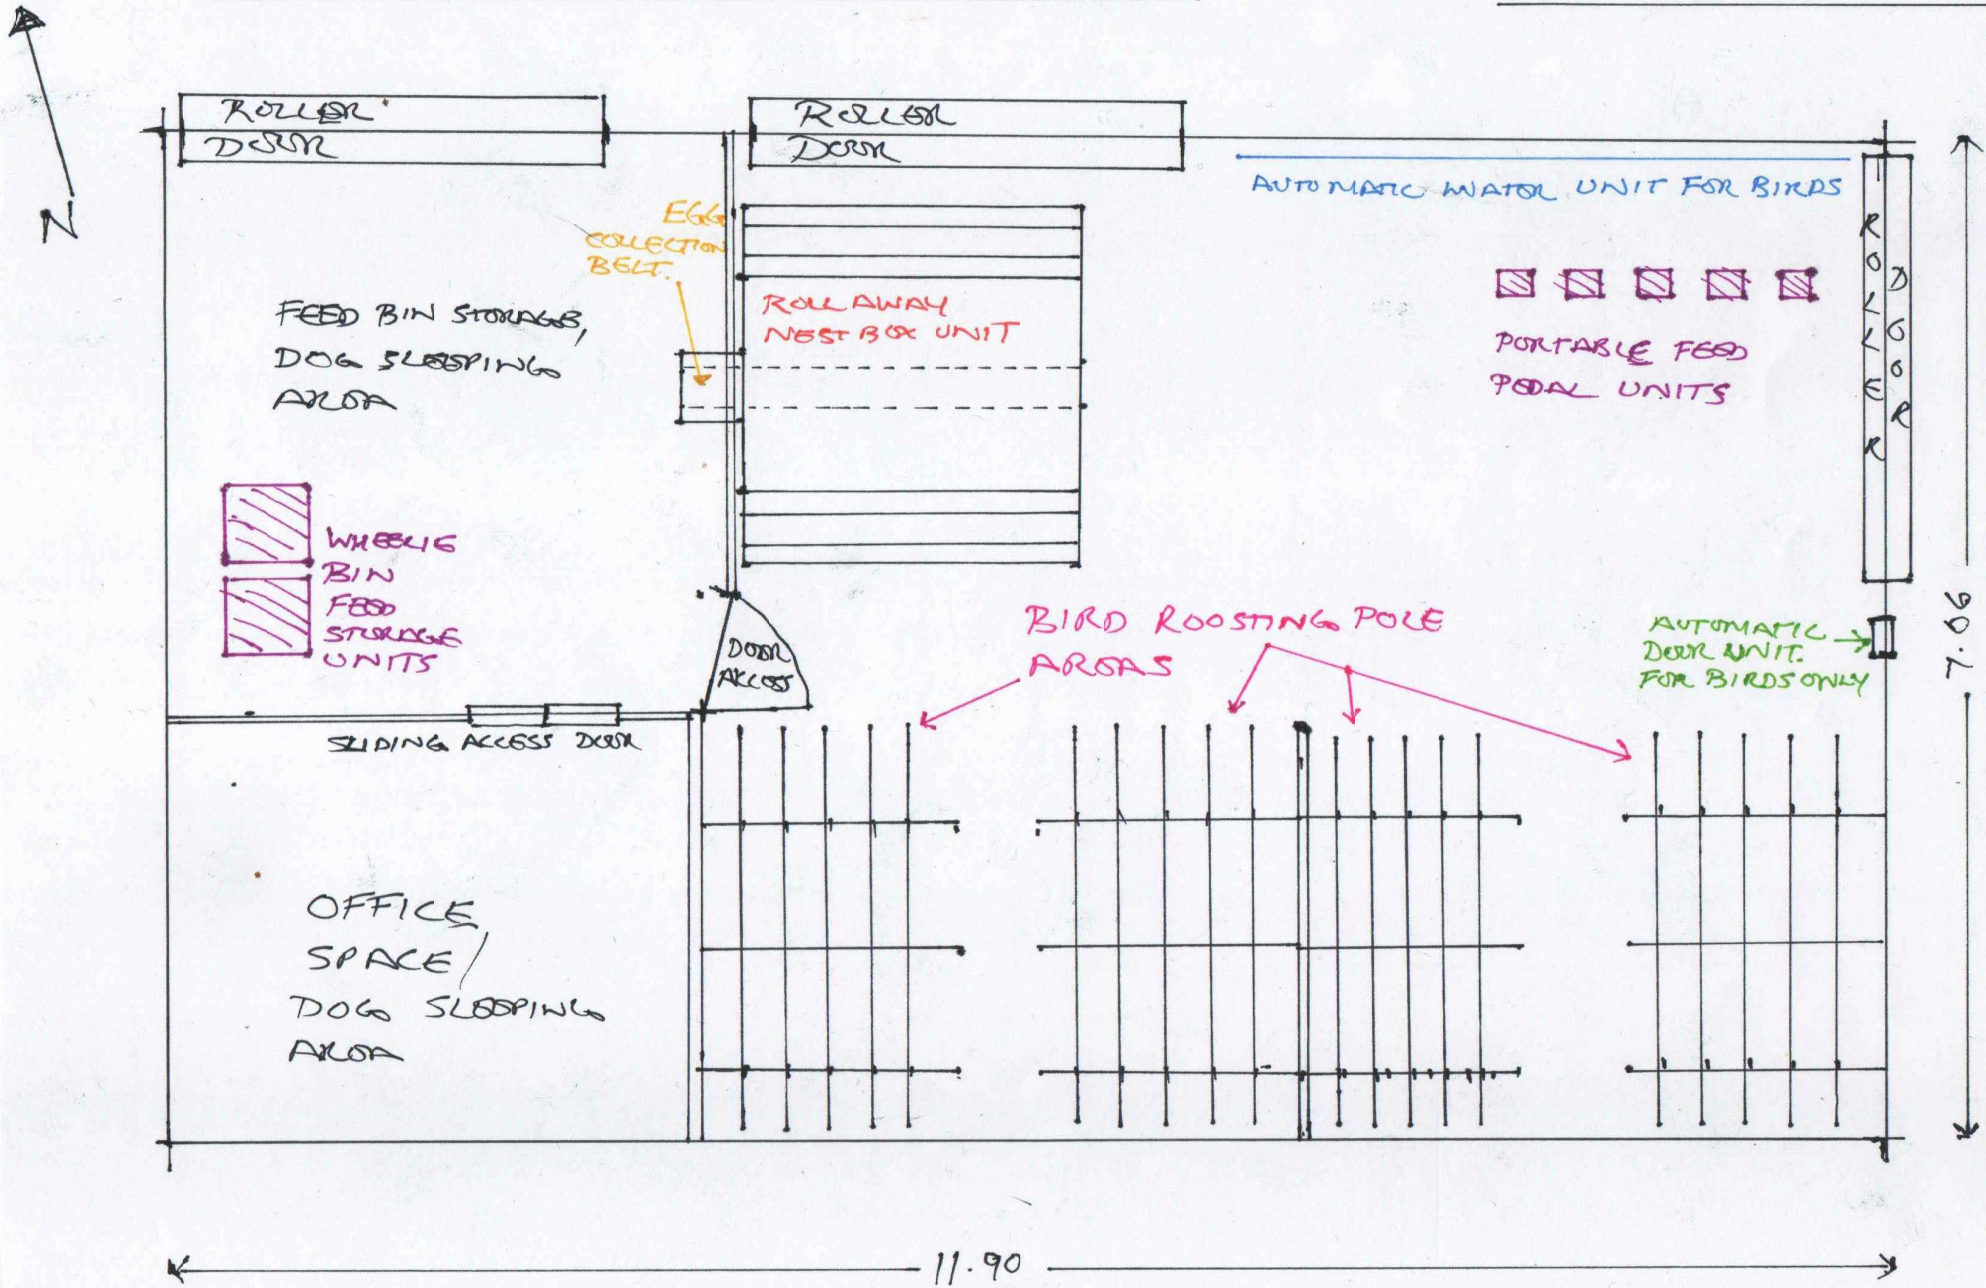 N
ROLLER
DOOR
ROLLER
DOOR
AUTOMATIC WATER UNIT FOR BIRDS
ROLLER
DOOR
EGG
COLLECTION
BELT.
ROLL AWAY
NEST BOX UNIT
FEED BIN STORAGE,
DOG SLEEPING
AREA
PORTABLE FEED
PEDAL UNITS
WHEELIE
BIN
FEED
STORAGE
UNITS
DOOR
ACCESS
BIRD ROOSTING POLE
AREAS
AUTOMATIC
DOOR UNIT.
FOR BIRDS ONLY
7.06
SLIDING ACCESS DOOR
OFFICE
SPACE/
DOG SLEEPING
AREA
11.90